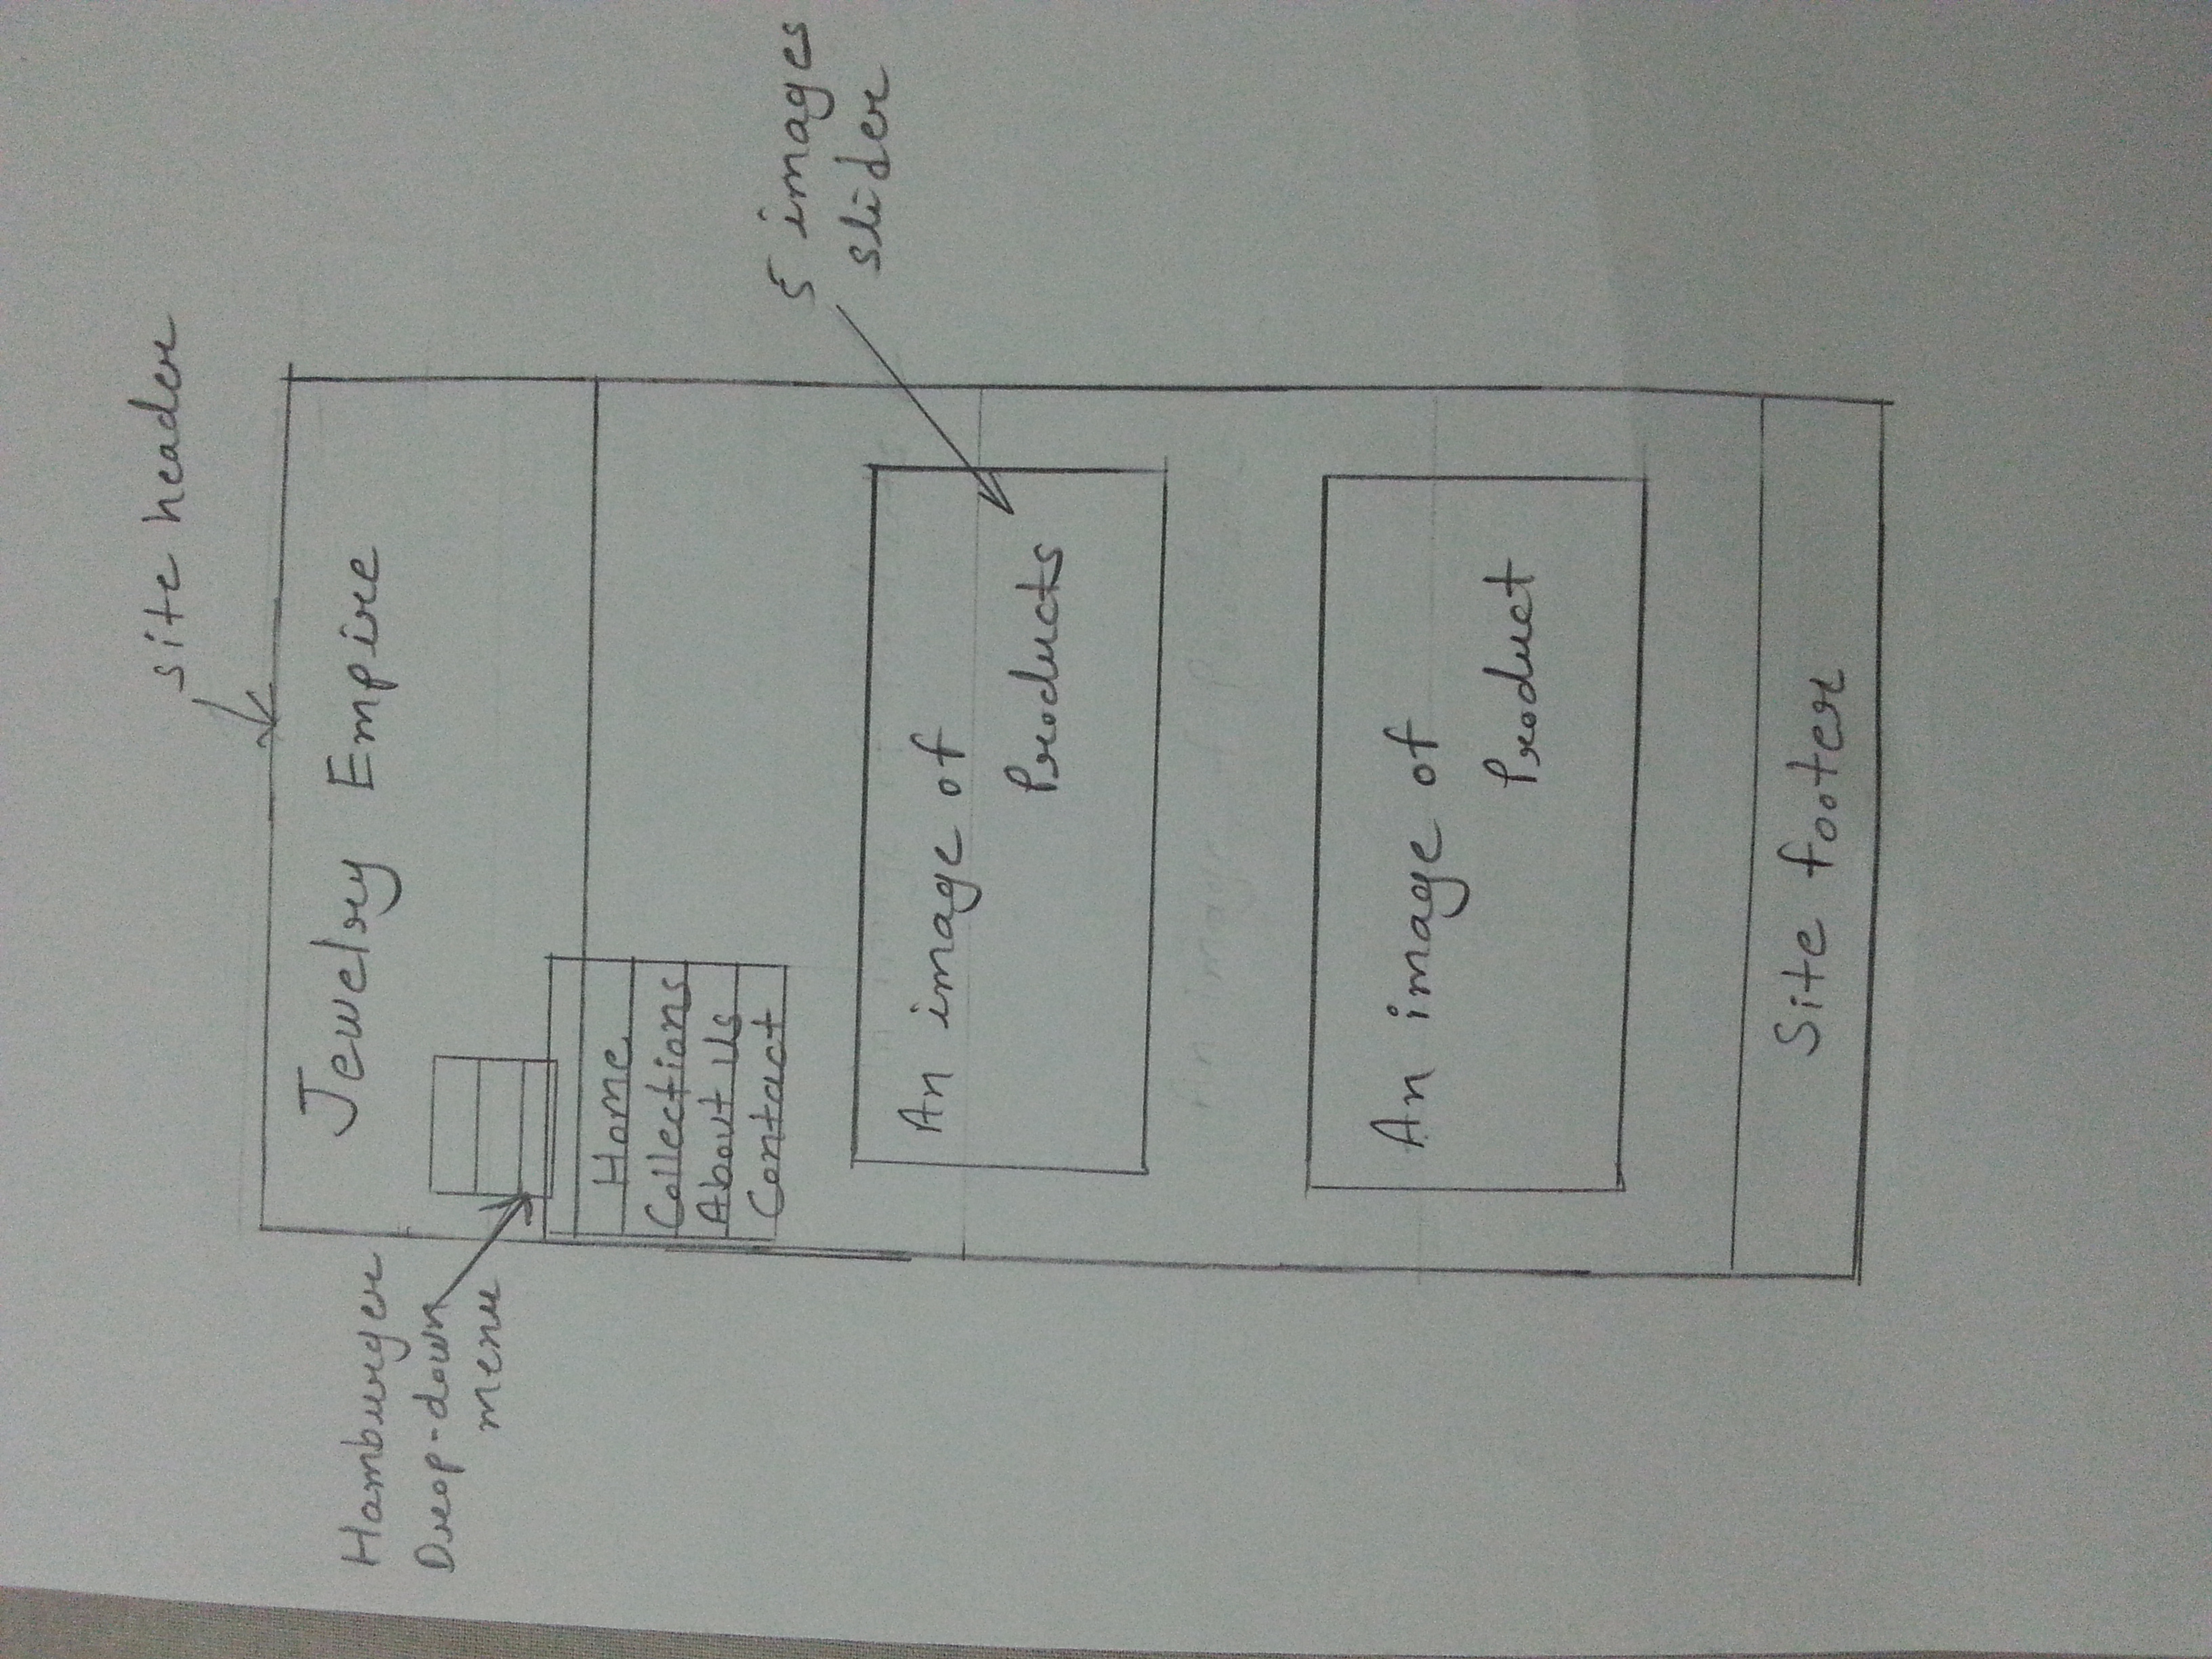 site header
Jewelry Empire
Hamburger
Drop-down
menu
Home
Collections
About Us
Contact
5 images
slider
An image of
Products
An image of
An image of
Product
Site footer